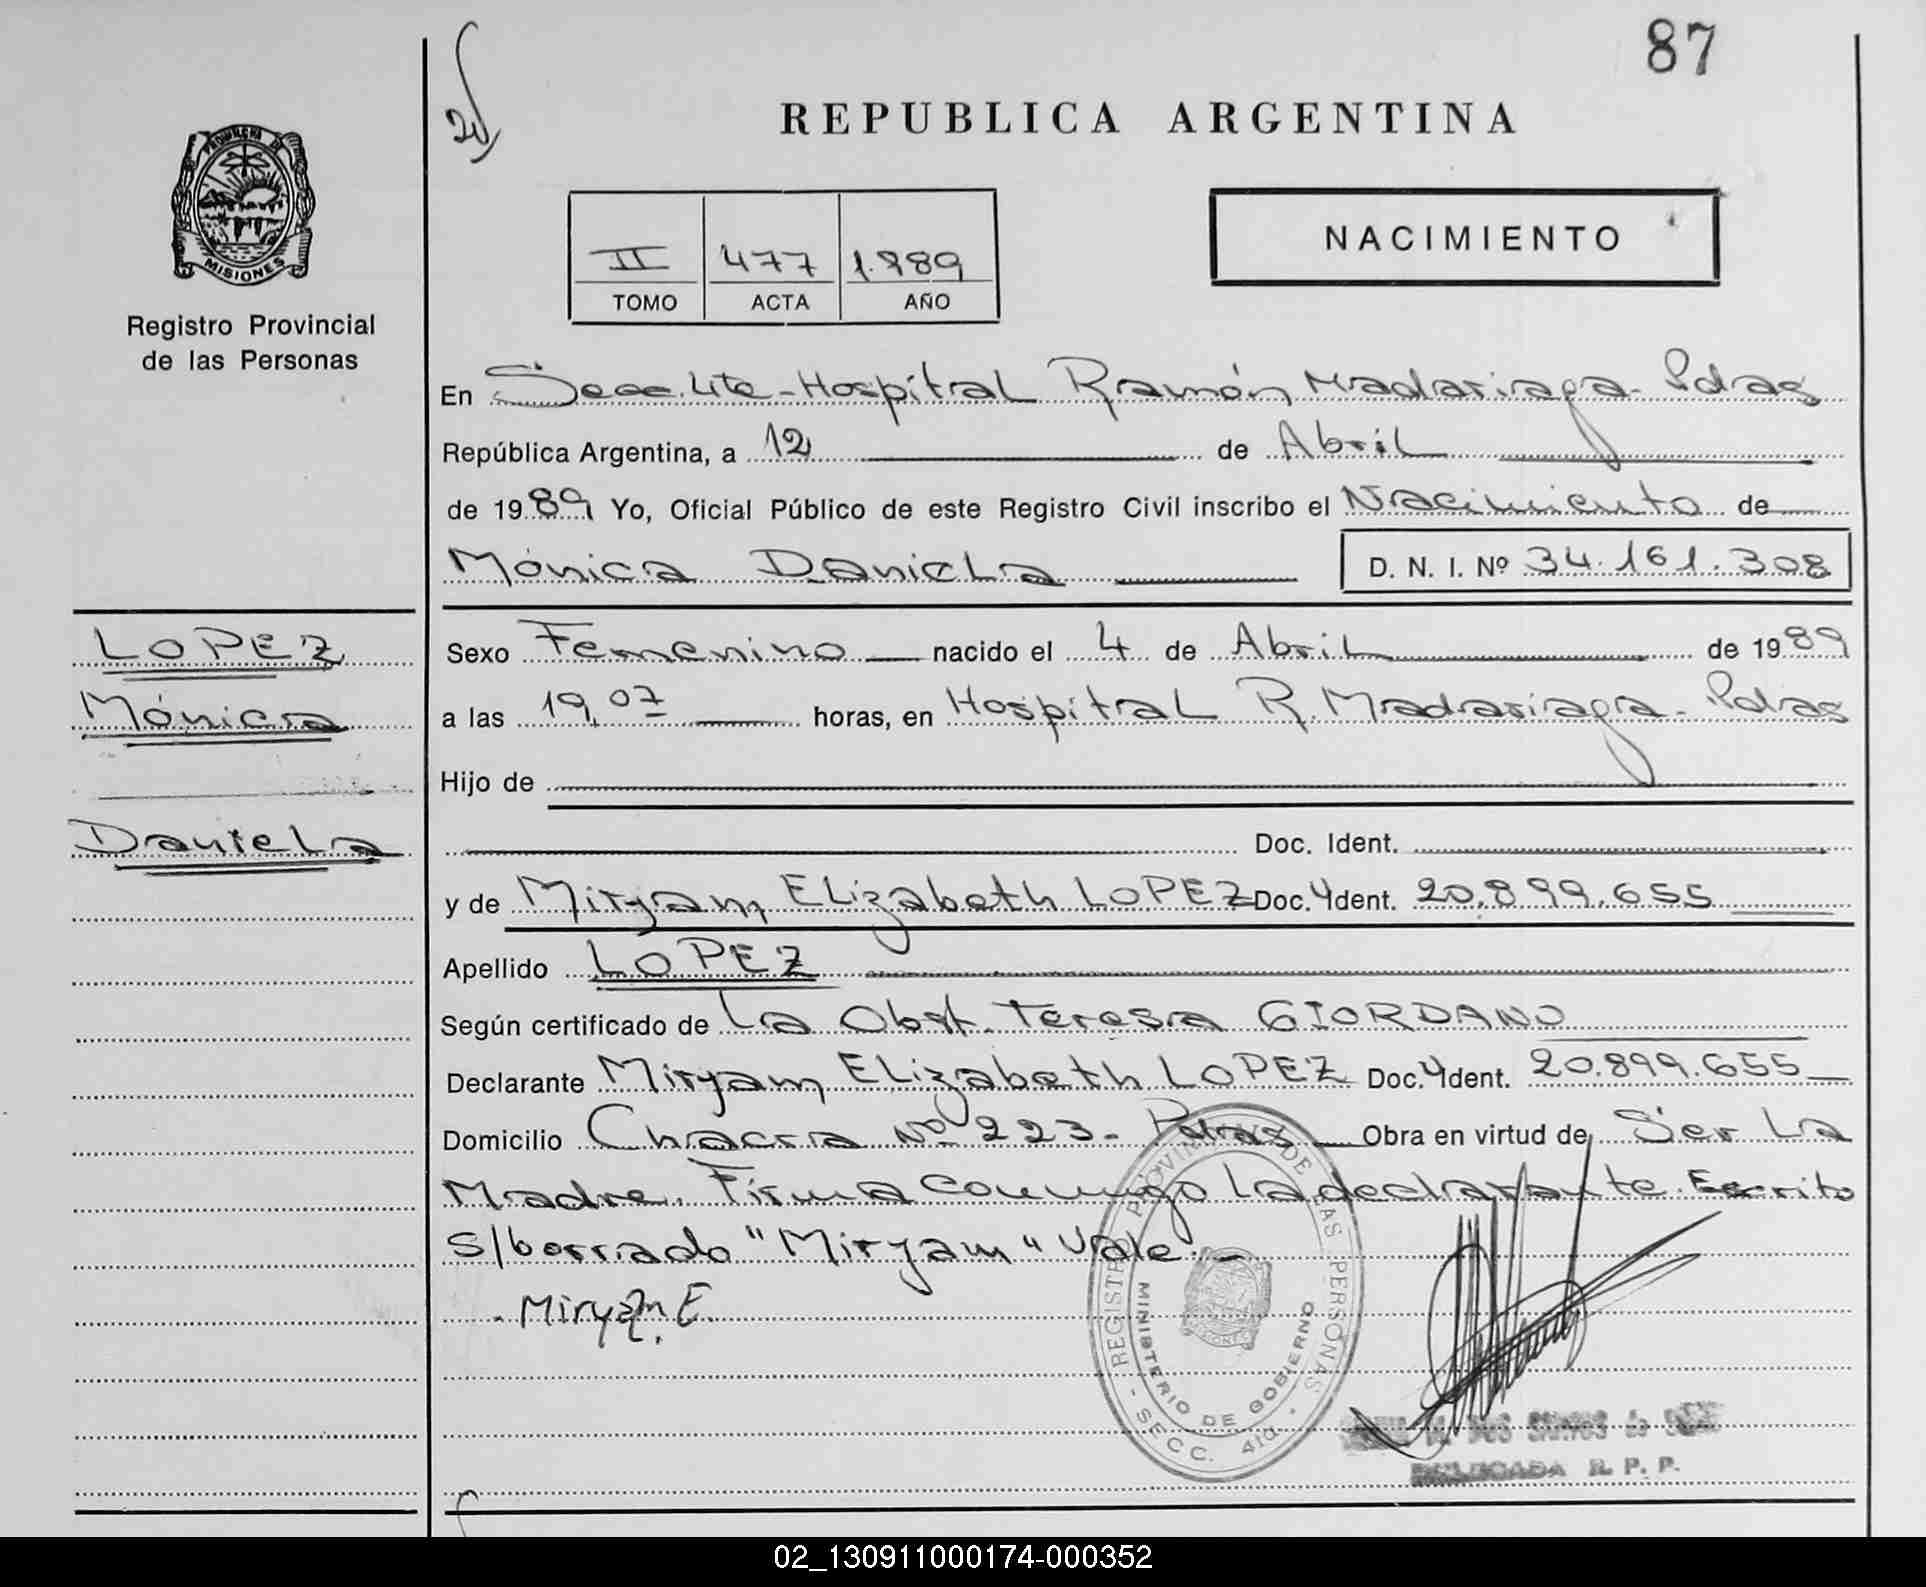 87
REPUBLICA ARGENTINA
PROVINCIA DE
MISIONES
Registro Provincial
de las Personas
II 477 1.989
TOMO ACTA AÑO
NACIMIENTO
En Secc. 4ta - Hospital Ramón Madariaga - Pdas
República Argentina, a 12 de Abril
de 1989 Yo, Oficial Público de este Registro Civil inscribo el Nacimiento de
Mónica Daniela D. N. I. Nº 34.161.308
LOPEZ
Mónica
Daniela
Sexo Femenino nacido el 4 de Abril de 1989
a las 19,07 horas, en Hospital R. Madariaga - Pdas
Hijo de
Doc. Ident.
y de Miryam Elizabeth LOPEZ Doc. Ident. 20.899.655
Apellido LOPEZ
Según certificado de La Obst. Teresa GIORDANO
Declarante Miryam Elizabeth LOPEZ Doc. Ident. 20.899.655
Domicilio Chacra Nº 223 - Pdas Obra en virtud de Ser La
Madre. Firma conmigo la declarante. Escrito
s/borrado "Miryam" Vale.
Miryam E.
REGISTRO PROVINCIAL DE LAS PERSONAS
MINISTERIO DE GOBIERNO
- SECC. 4ta. -
DELEGADA R. P. P.
02_130911000174-000352